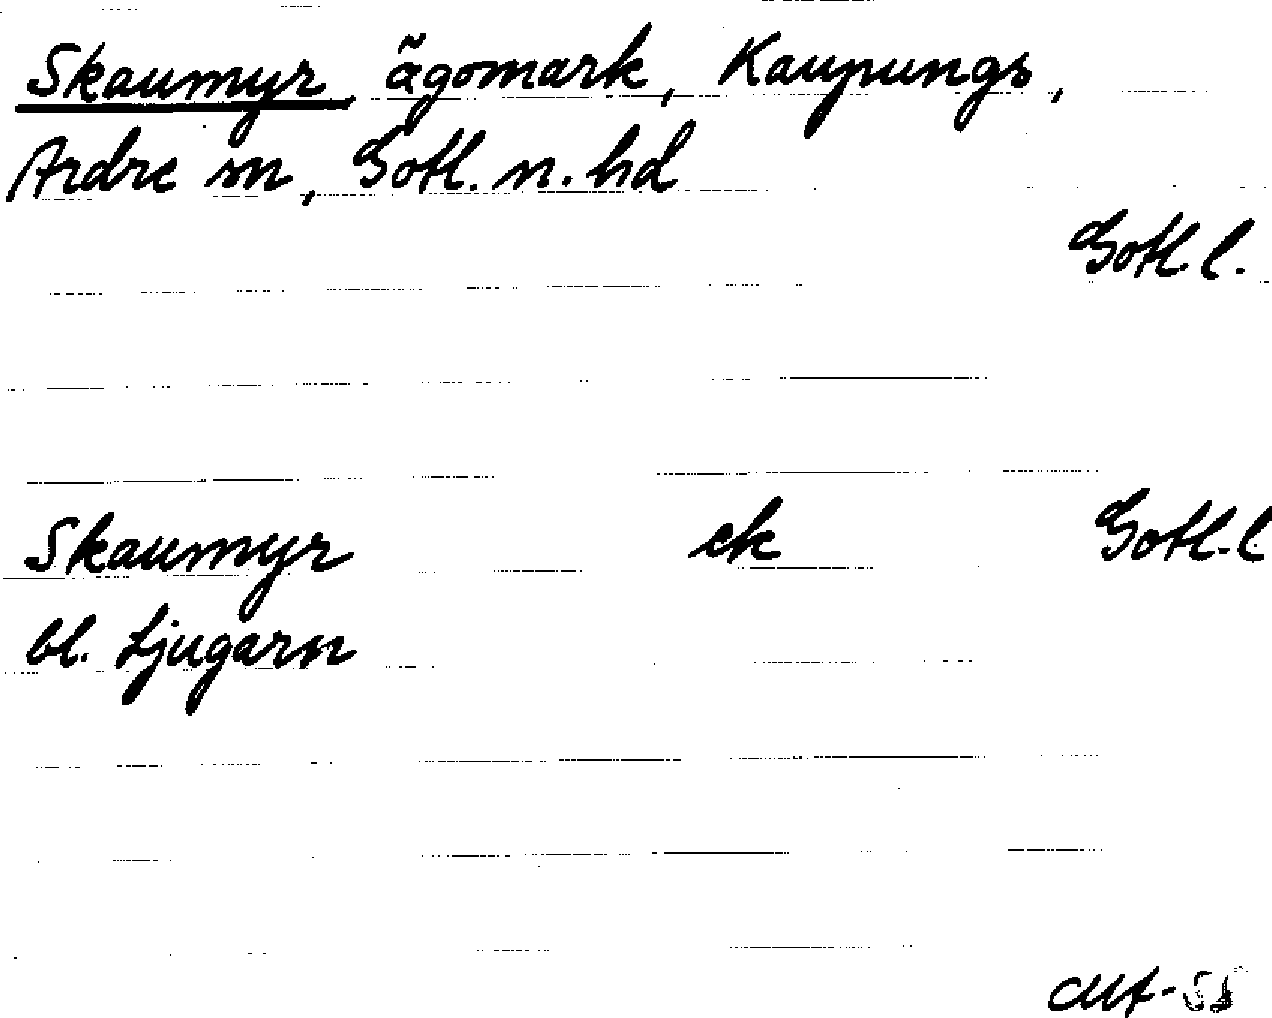 Skaumyr, ägomark, Kaupungs,
Ardre sn, Gotl. n. hd
Gotl. l.
Skaumyr ek Gotl. l
bl. Ljugarn